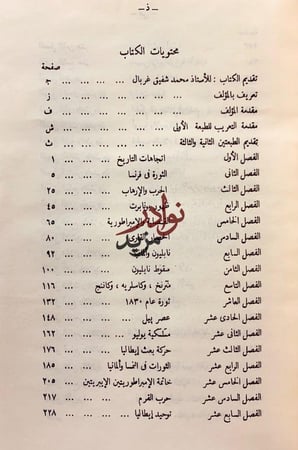 — ذ —
محتويات الكتاب
صفحة
تقديم الكتاب : للأستاذ محمد شفيق غربال ... ... ... ج
تعريف بالمؤلف ... ... ... ... ... ز
مقدمة المؤلف ... ... ... ... ... ف
مقدمة التعريب للطبعة الأولى ... ... ... ش
تقديم الطبعتين الثانية والثالثة ... ... ... ث
الفصل الأول اتجاهات التاريخ ... ... ... ١
الفصل الثانى الثورة فى فرنسا ... ... ... ٥
الفصل الثالث الحرب والإرهاب ... ... ... ٢٥
الفصل الرابع ... ... ٤٥
الفصل الخامس والإمبراطورية ... ٦٥
الفصل السادس ... ... ٨٠
الفصل السابع نابليون ... ... ٩٢
الفصل الثامن سقوط نابليون ... ... ... ١٠٠
الفصل التاسع مترنخ ، وكاسلريه ، وكاننج ... ١١٦
الفصل العاشر ثورة عام ١٨٣٠ ... ... ... ١٣٢
الفصل الحادى عشر عصر پيل ... ... ... ١٤٨
الفصل الثانى عشر ملكية يوليو ... ... ... ١٦٢
الفصل الثالث عشر حركة بعث إيطاليا ... ... ... ١٧٦
الفصل الرابع عشر الثورات فى النمسا وألمانيا ... ... ١٨٥
الفصل الخامس عشر خاتمة الإمبراطوريتين الإيبريتين ... ٢٠٥
الفصل السادس عشر حرب القرم ... ... ... ٢١٧
الفصل السابع عشر توحيد إيطاليا ... ... ... ٢٢٨
نوادر